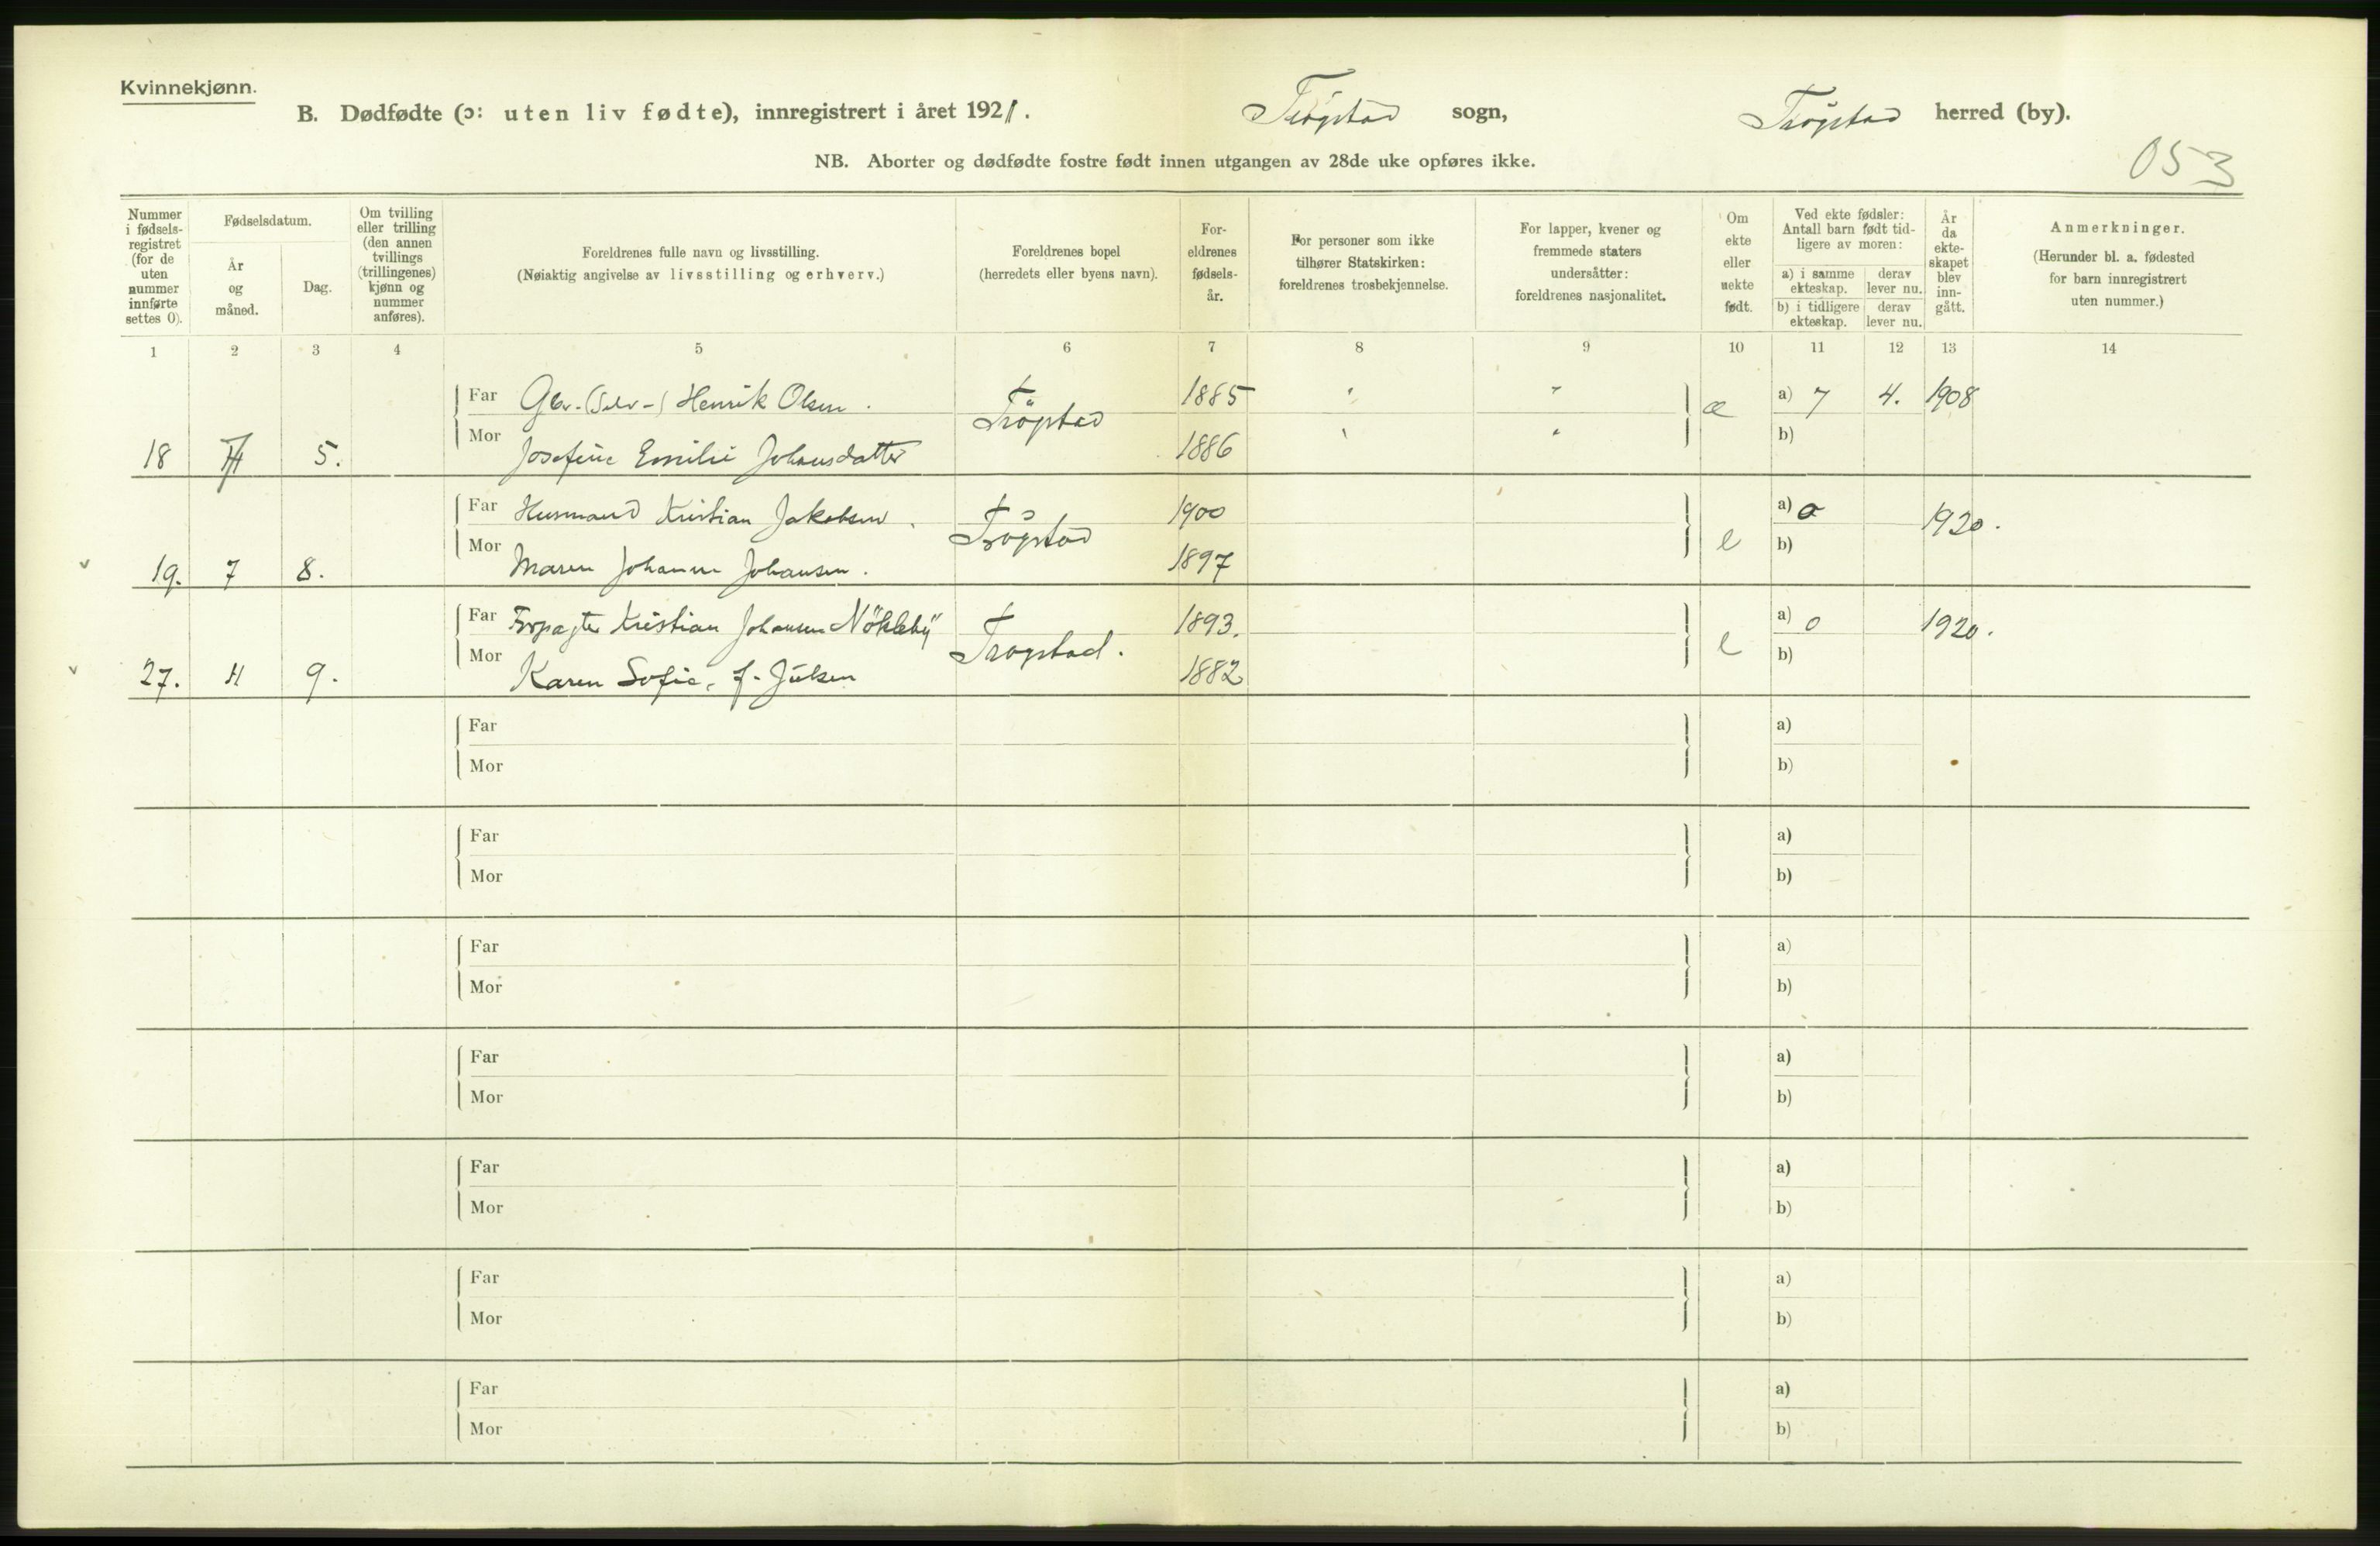 Kvinnekjønn.
B. Dødfødte (ɔ: uten liv fødte), innregistrert i året 1921. Trögstad sogn, Trögstad herred (by).
NB. Aborter og dødfødte fostre født innen utgangen av 28de uke opføres ikke.
053
Nummer i fødsels-registret (for de uten nummer innførte settes 0).
Fødselsdatum.
År og måned.
Dag.
Om tvilling eller trilling (den annen tvillings (trillingenes) kjønn og nummer anføres).
Foreldrenes fulle navn og livsstilling.
(Nøiaktig angivelse av livsstilling og erhverv.)
Foreldrenes bopel
(herredets eller byens navn).
For-eldrenes fødsels-år.
For personer som ikke tilhører Statskirken: foreldrenes trosbekjennelse.
For lapper, kvener og fremmede staters undersåtter: foreldrenes nasjonalitet.
Om ekte eller uekte født.
Ved ekte fødsler: Antall barn født tid-ligere av moren:
a) i samme ekteskap. derav lever nu.
b) i tidligere ekteskap. derav lever nu.
År da ekte-skapet blev inn-gått.
Anmerkninger.
(Herunder bl. a. fødested for barn innregistrert uten nummer.)
1 2 3 4 5 6 7 8 9 10 11 12 13 14
Far Gbr. (Selv-) Henrik Olsen. Trögstad 1885 " " æ a) 7 4. 1908
Mor Josefine Emilie Johansdatter 1886 " " b)
18 5.
Far Husmand Kristian Jakobsen. Trögstad 1900 e a) 0 1920.
Mor Maren Johanne Johansen. 1897 b)
19. 7 8.
Far Forpagter Kristian Johansen Nökleby Trogstad. 1893. e a) 0 1920.
Mor Karen Sofie, f. Julsen 1882 b)
27. 9.
Far a)
Mor b)
Far a)
Mor b)
Far a)
Mor b)
Far a)
Mor b)
Far a)
Mor b)
Far a)
Mor b)
Far a)
Mor b)